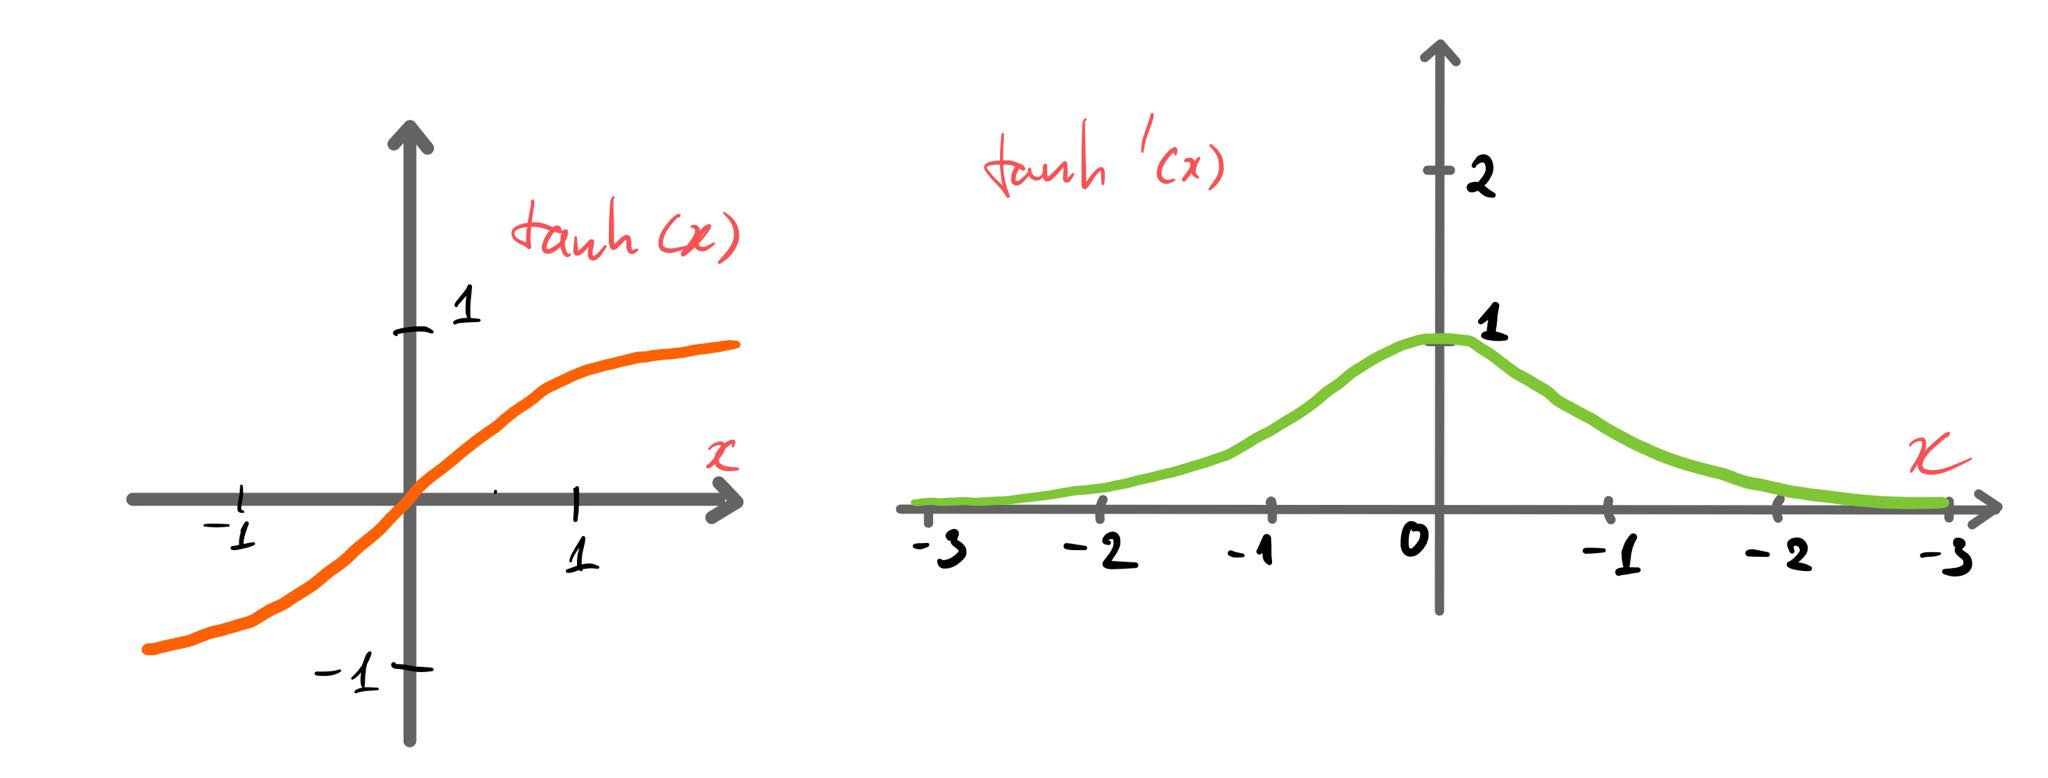 tanh (x)
1
x
-1
1
-1
tanh '(x)
2
1
x
-3
-2
-1
0
-1
-2
-3